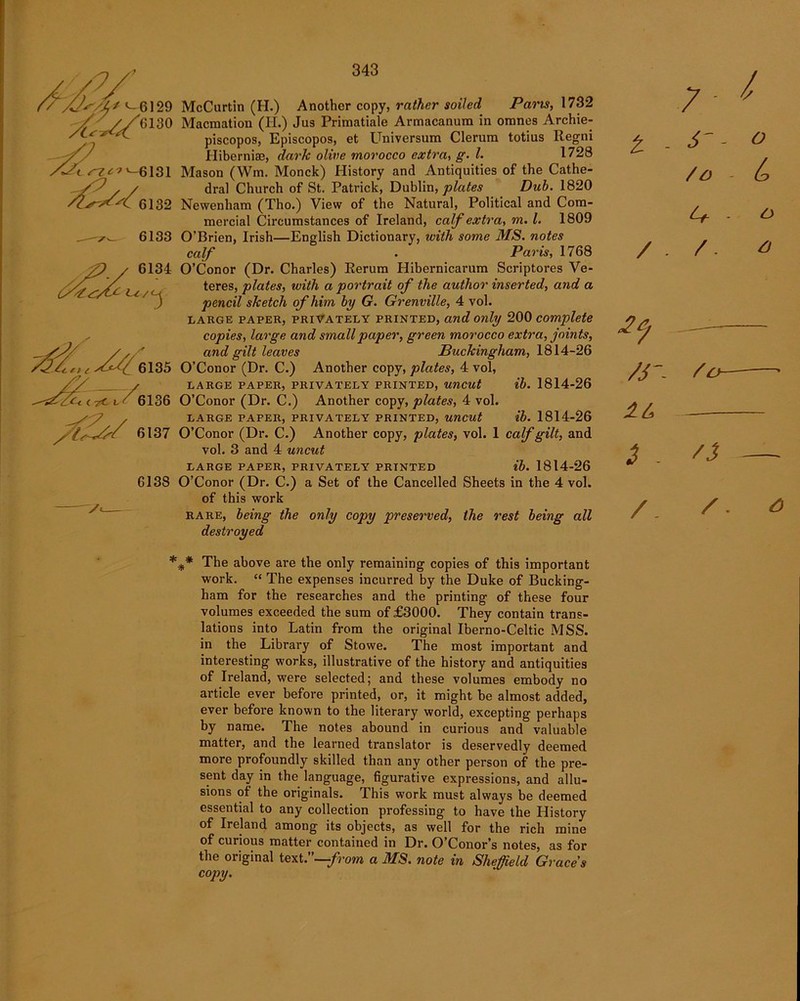 343
6129 McCurtin (H.) Another copy, rather soiled Paris, 1732
6130 Macmation (H.) Jus Primatiale Armacanum in omnes Archie-
piscopos, Episcopos, et Universum Clerum totius Regni
Hiberniæ, dark olive morocco extra, g. l. 1728
6131 Mason (Wm. Monck) History and Antiquities of the Cathe-
dral Church of St. Patrick, Dublin, plates Dub. 1820
6132 Newenham (Tho.) View of the Natural, Political and Com-
mercial Circumstances of Ireland, calf extra, m. l. 1809
6133 O'Brien, Irish—English Dictionary, with some MS. notes
calf Paris, 1768
6134 O'Conor (Dr. Charles) Rerum Hibernicarum Scriptores Ve-
teres, plates, with a portrait of the author inserted, and a
pencil sketch of him by G. Grenville, 4 vol.
LARGE PAPER, PRIVATELY PRINTED, and only 200 complete
copies, large and small paper, green morocco extra, joints,
and gilt leaves Buckingham, 1814-26
6135 O'Conor (Dr. C.) Another copy, plates, 4 vol,
LARGE PAPER, PRIVATELY PRINTED, uncut ib. 1814-26
6136 O'Conor (Dr. C.) Another copy, plates, 4 vol.
LARGE PAPER, PRIVATELY PRINTED, uncut ib. 1814-26
6137 O'Conor (Dr. C.) Another copy, plates, vol. 1 calf gilt, and
vol. 3 and 4 uncut
LARGE PAPER, PRIVATELY PRINTED ib. 1814-26
6138 O'Conor (Dr. C.) a Set of the Cancelled Sheets in the 4 vol.
of this work
RARE, being the only copy preserved, the rest being all
destroyed
*** The above are the only remaining copies of this important
work. “ The expenses incurred by the Duke of Bucking-
ham for the researches and the printing of these four
volumes exceeded the sum of £3000. They contain trans-
lations into Latin from the original Iberno-Celtic MSS.
in the Library of Stowe. The most important and
interesting works, illustrative of the history and antiquities
of Ireland, were selected; and these volumes embody no
article ever before printed, or, it might be almost added,
ever before known to the literary world, excepting perhaps
by name. The notes abound in curious and valuable
matter, and the learned translator is deservedly deemed
more profoundly skilled than any other person of the pre-
sent day in the language, figurative expressions, and allu-
sions of the originals. This work must always be deemed
essential to any collection professing to have the History
of Ireland among its objects, as well for the rich mine
of curious matter contained in Dr. O'Conor's notes, as for
the original text.”—from a MS. note in Sheffield Grace's
copy.
7 - 6
2 - 5 - 0
10 - 6
4 - 0
1 . 1 . 0
29
15 - 10
26
3 - 13
1 . 1 . 0